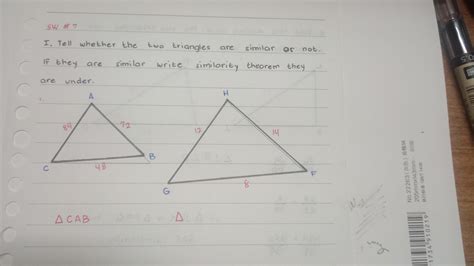 SW # 7
I. Tell whether the two triangles are similar or not.
If they are similar write similarity theorem they
are under.
1.
A
84
72
C
48
B
H
12
14
G
8
F
△CAB
△